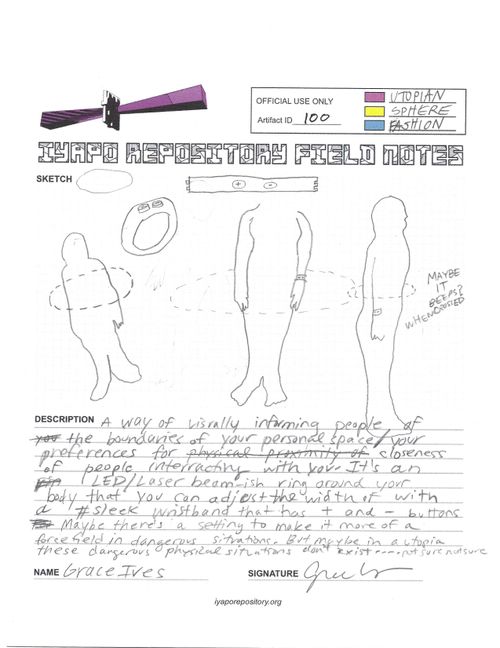 OFFICIAL USE ONLY
Artifact ID 100
UTOPIAN
SPHERE
FASHION
IYAPO REPOSITORY FIELD NOTES
SKETCH
+ -
MAYBE
IT
BEEPS?
WHEN CROSSED
DESCRIPTION A way of visually informing people of
you the boundaries of your personal space/your
preferences for physical proximity of closeness
of people interracting with you. It's an
LED/Laser beam-ish ring around your
body that you can adjust the width of with
a #sleek wristband that has + and - buttons
Maybe there's a setting to make it more of a
forcefield in dangerous situations. But maybe in a utopia
these dangerous physical situations don't exist ---- not sure not sure
NAME Grace Ives SIGNATURE
iyaporepository.org